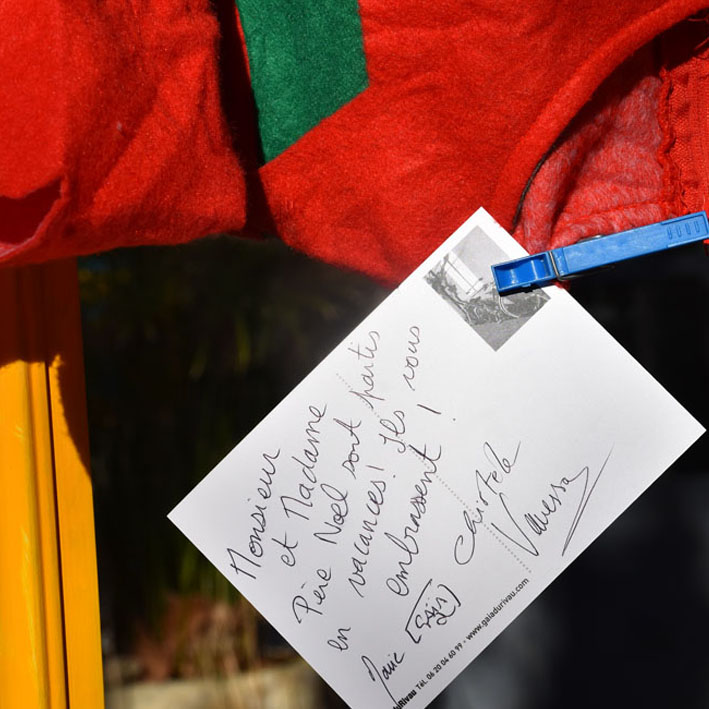 Monsieur
et Madame
Père Noël sont partis
en vacances! Ils vous
embrassent!
Christele
Vanessa
duRivau TéL. 06 20 04 60 99 - www.gaiadurivau.com